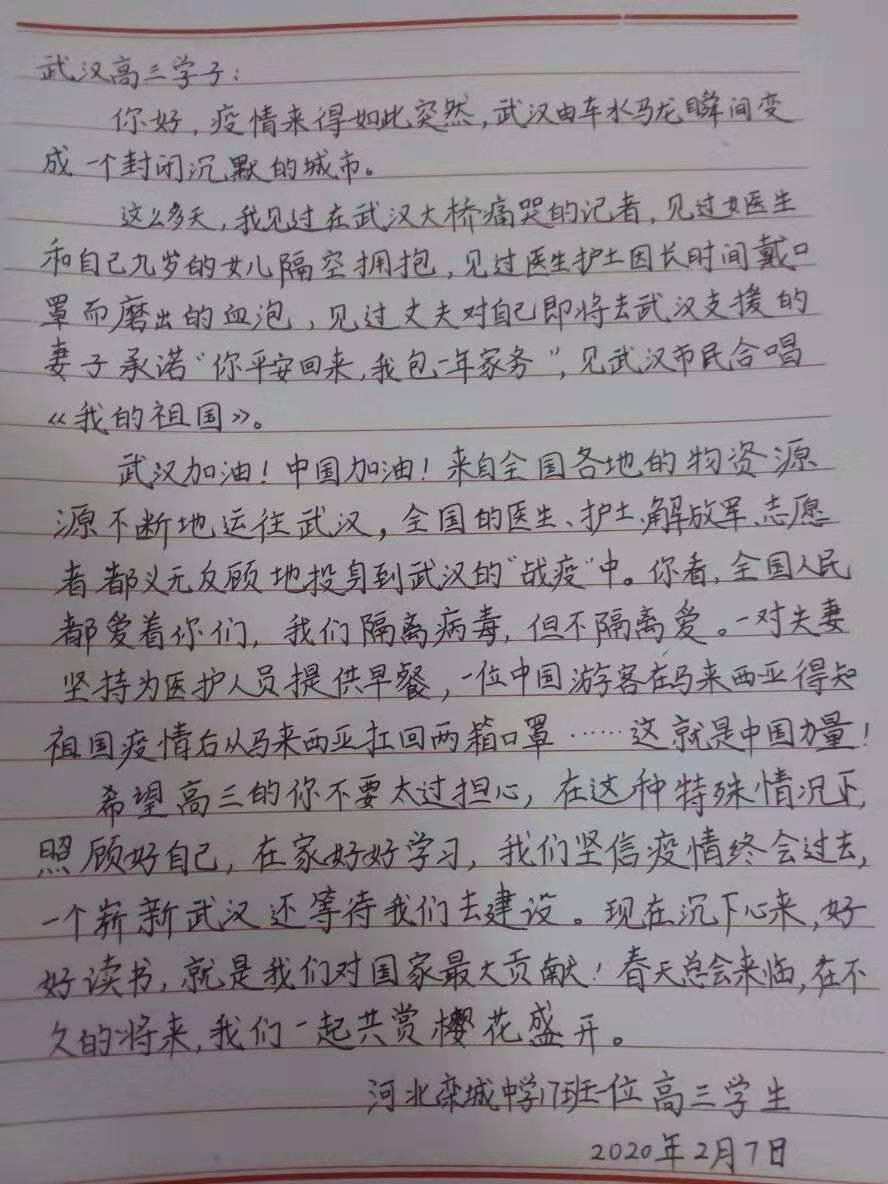 武汉高三学子：
你好，疫情来得如此突然，武汉由车水马龙瞬间变
成一个封闭沉默的城市。
这么多天，我见过在武汉大桥痛哭的记者，见过女医生
和自己九岁的女儿隔空拥抱，见过医生护士因长时间戴口
罩而磨出的血泡，见过丈夫对自己即将去武汉支援的
妻子承诺“你平安回来，我包一年家务”，见武汉市民合唱
《我的祖国》。
武汉加油！中国加油！来自全国各地的物资源
源不断地运往武汉，全国的医生、护士、解放军、志愿
者都义无反顾地投身到武汉的“战疫”中。你看，全国人民
都爱着你们，我们隔离病毒，但不隔离爱。一对夫妻
坚持为医护人员提供早餐，一位中国游客在马来西亚得知
祖国疫情后从马来西亚扛回两箱口罩……这就是中国力量！
希望高三的你不要太过担心，在这种特殊情况下，
照顾好自己，在家好好学习，我们坚信疫情终会过去，
一个崭新武汉还等待我们去建设。现在沉下心来，好
好读书，就是我们对国家最大贡献！春天总会来临，在不
久的将来，我们一起共赏樱花盛开。
河北栾城中学17班一位高三学生
2020年2月7日